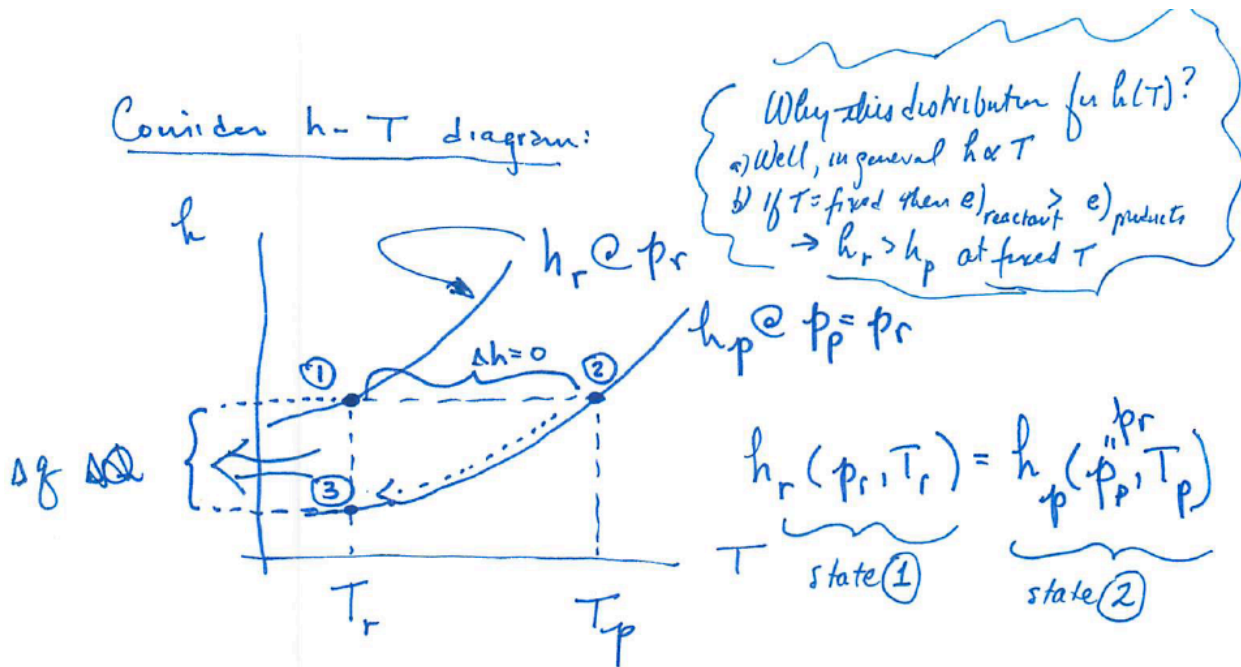 Consider h-T diagram:
Why this distribution for h(T)?
a) Well, in general h ∝ T
b) If T = fixed then e)reactant > e)products
→ h_r > h_p at fixed T
h
h_r @ p_r
h_p @ p_p = p_r
Δh = 0
①
②
Δq
③
h_r (p_r, T_r) = h_p (p_p, T_p)
" p_r
T
state ①
state ②
T_r
T_p